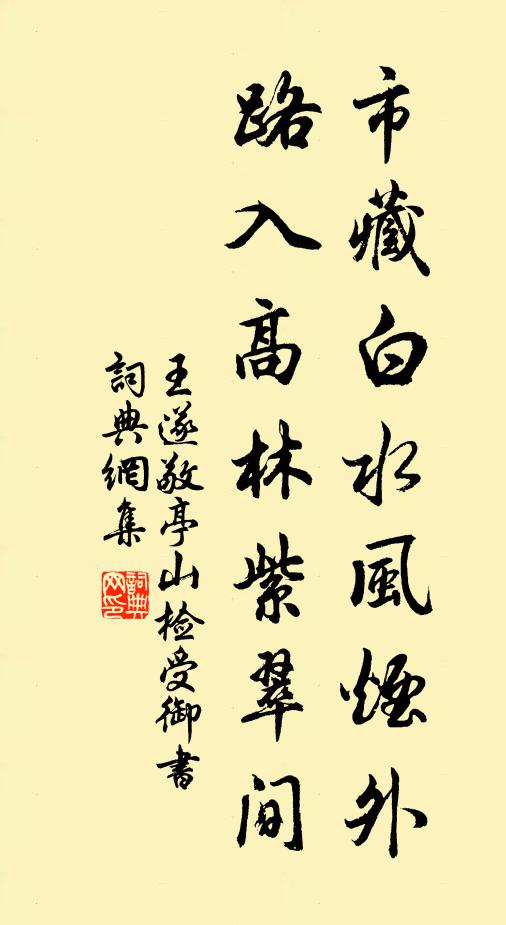 市藏白水風煙外
路入高林紫翠間
王遂敬亭山检受御書
詞典網集
詞典網印